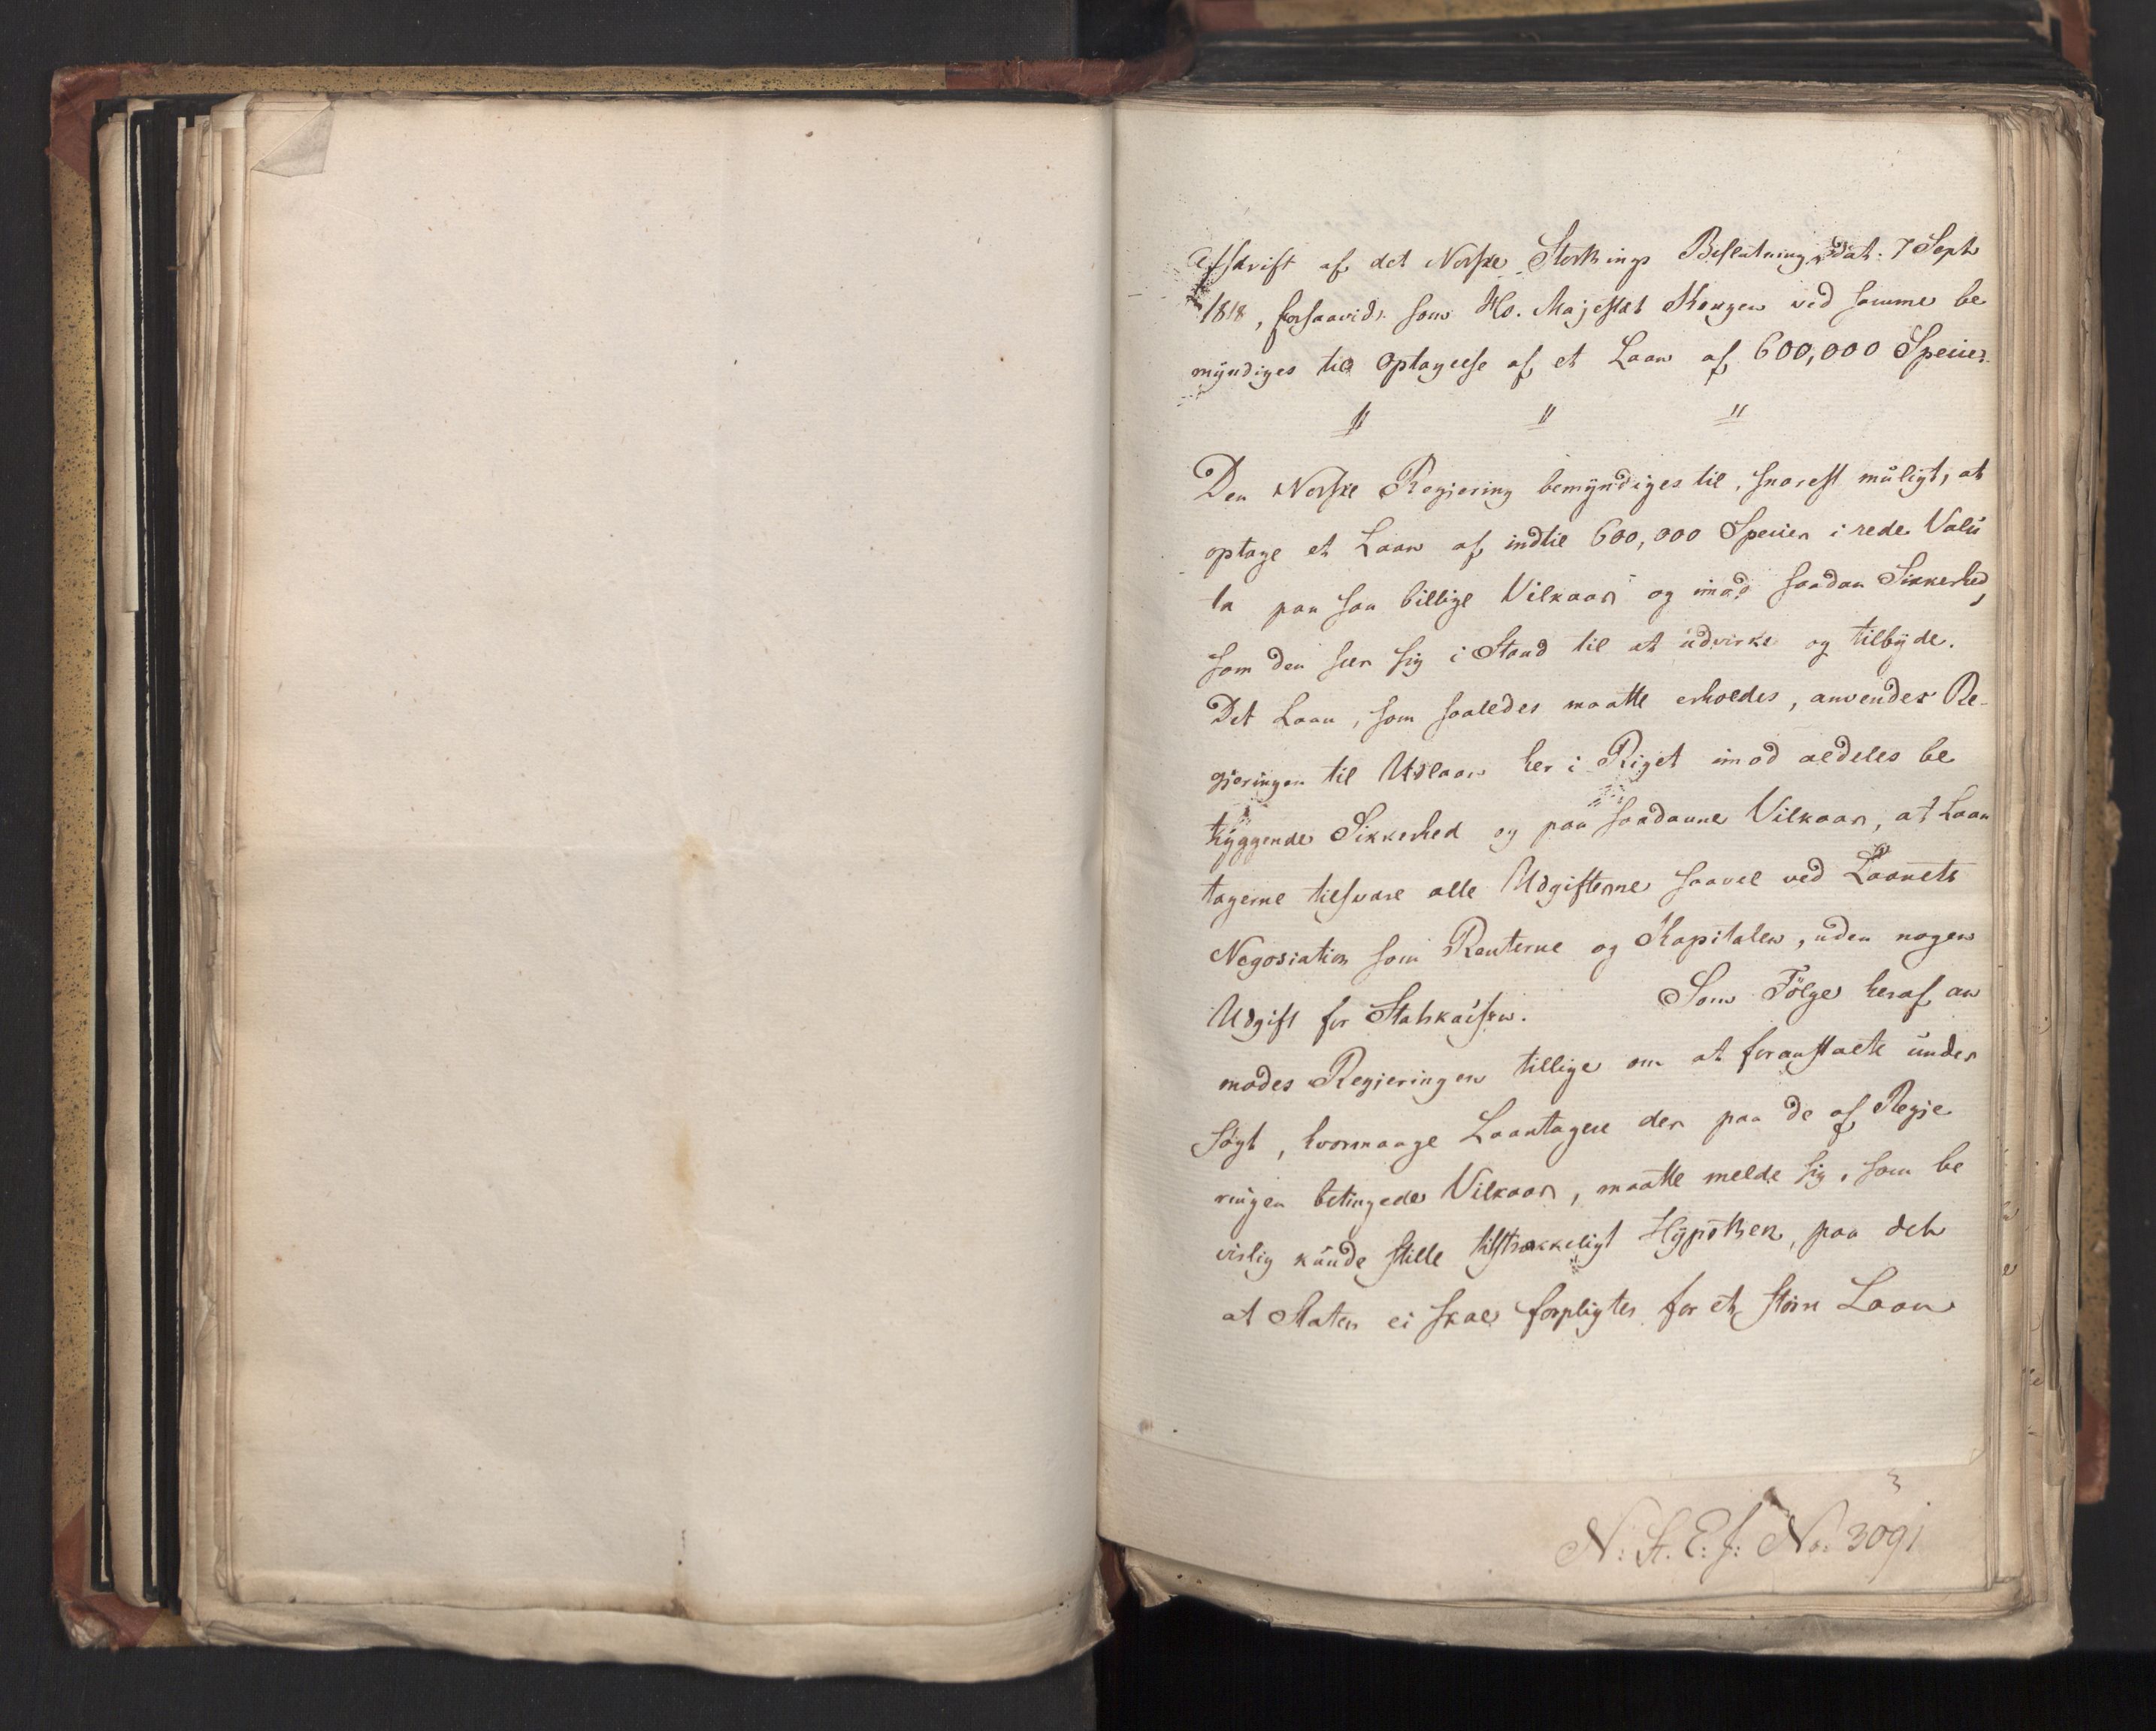 Afskrift af det Norske Storthings Beslutning, dat: 7 Septr
1818, forsaavidt som Hs. Majestæt Kongen ved samme be
myndiges til Optagelse af et Laan af 600,000 Specier.
" " "
Den Norske Regjering bemyndiges til, snarest muligt, at
optage et Laan af indtil 600,000 Specier i rede Valu
ta paa saa billige Vilkaar og imod saadan Sikkerhed,
som den seer sig i Stand til at udvirke og tilbyde.
Det Laan, som saaledes maatte erholdes, anvender Re-
gjeringen til Udlaan her i Riget imod aldeles be
tryggende Sikkerhed og paa saadanne Vilkaar, at Laan
tagerne tilsvare alle Udgifterne saavel ved Laanets
Negosiation som Renterne og Kapitalen, uden nogen
Udgift for Statskassen. Som Følge heraf an
modes Regjeringen tillige om at foranstalte under
søgt, hvormange Laantagere der paa de af Regje
ringen betingede Vilkaar, maatte melde sig, som be
vislig kunde stille tilstrækkeligt Hypothek, paa det
at Staten ei skal forpligtes for et større Laan
3
N: St. E: J: No: 3091